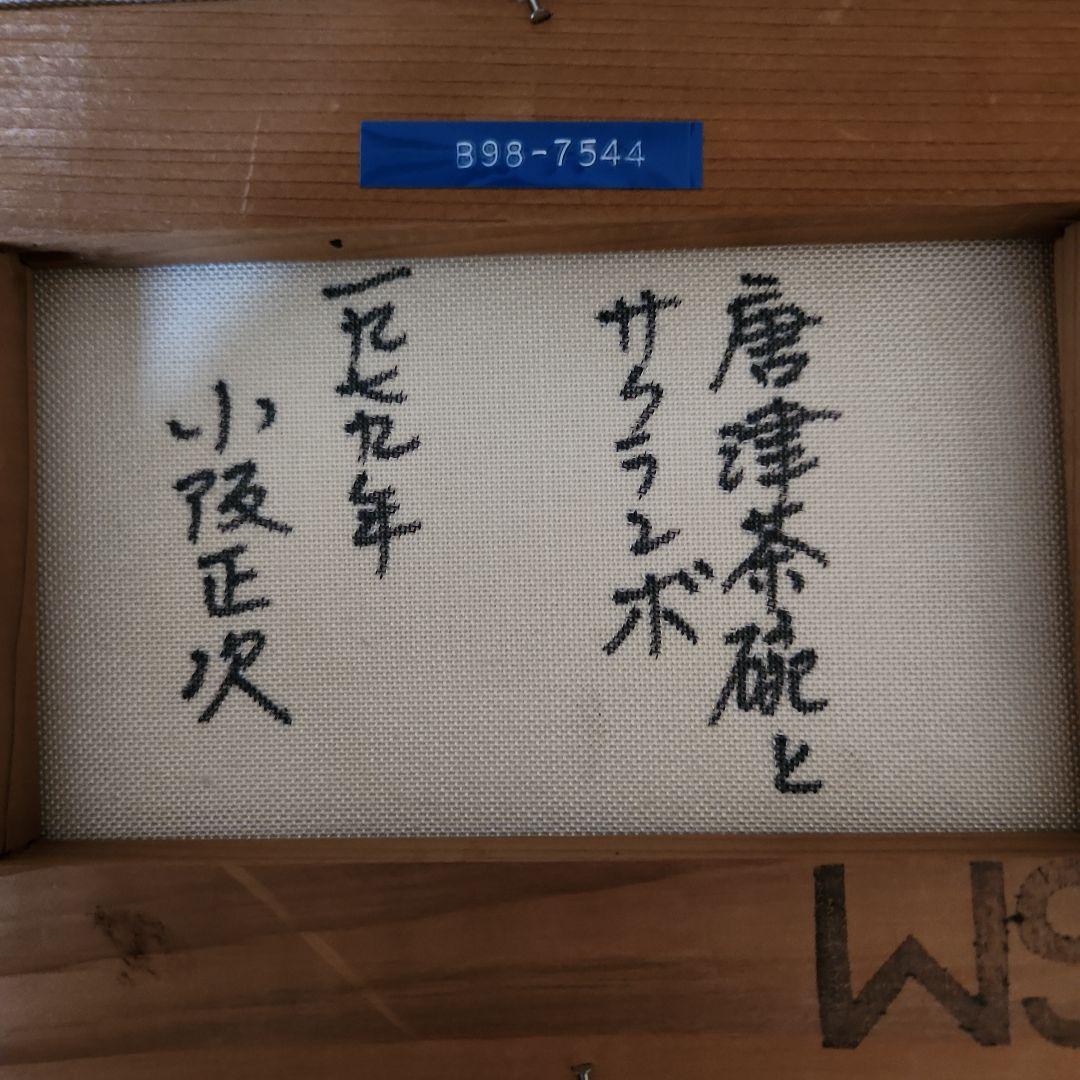 B98-7544
唐津茶碗と
サクランボ
一九七九年
小阪正次
SM